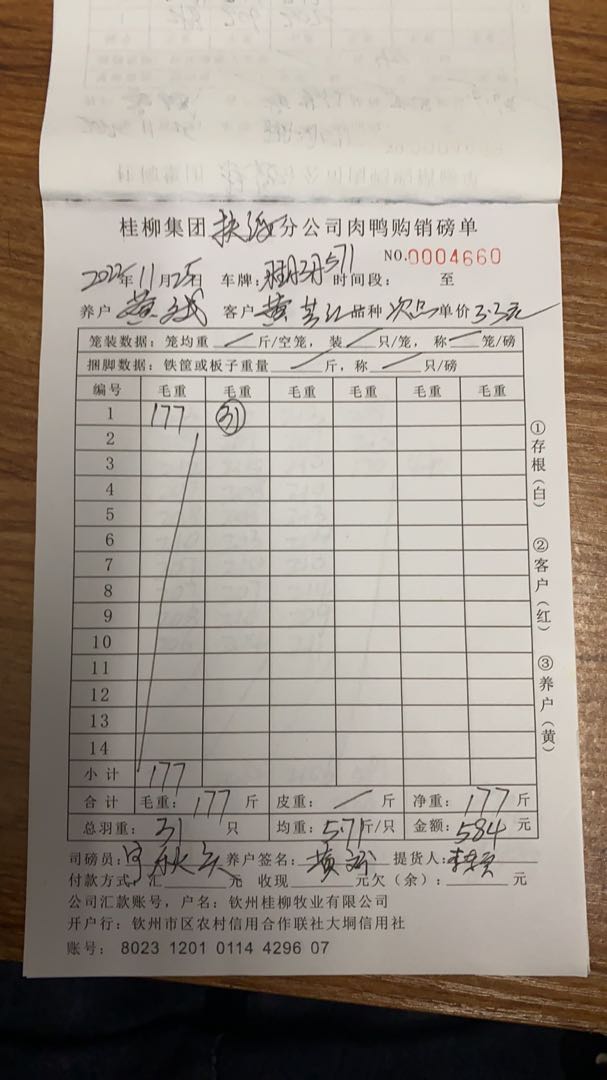 桂柳集团 分公司肉鸭购销磅单
NO.0004660
2022年11月25日 车牌: 571 时间段: 至
养户 黄 客户 黄 品种 次品 单价 3.3元
笼装数据:笼均重 / 斤/空笼,装 / 只/笼,称 / 笼/磅
捆脚数据:铁筐或板子重量 / 斤,称 / 只/磅
编号 毛重 毛重 毛重 毛重 毛重 毛重
1 177 31
2
3
4
5
6
7
8
9
10
11
12
13
14
小计 177
合计 毛重: 177 斤 皮重: / 斤 净重: 177 斤
总羽重: 31 只 均重: 5.71 斤/只 金额: 584 元
司磅员: 养户签名: 黄 提货人:
付款方式:汇 元 收现 元欠(余): 元
公司汇款账号,户名:钦州桂柳牧业有限公司
开户行:钦州市区农村信用合作联社大垌信用社
账号: 8023 1201 0114 4296 07
①存根(白)
②客户(红)
③养户(黄)